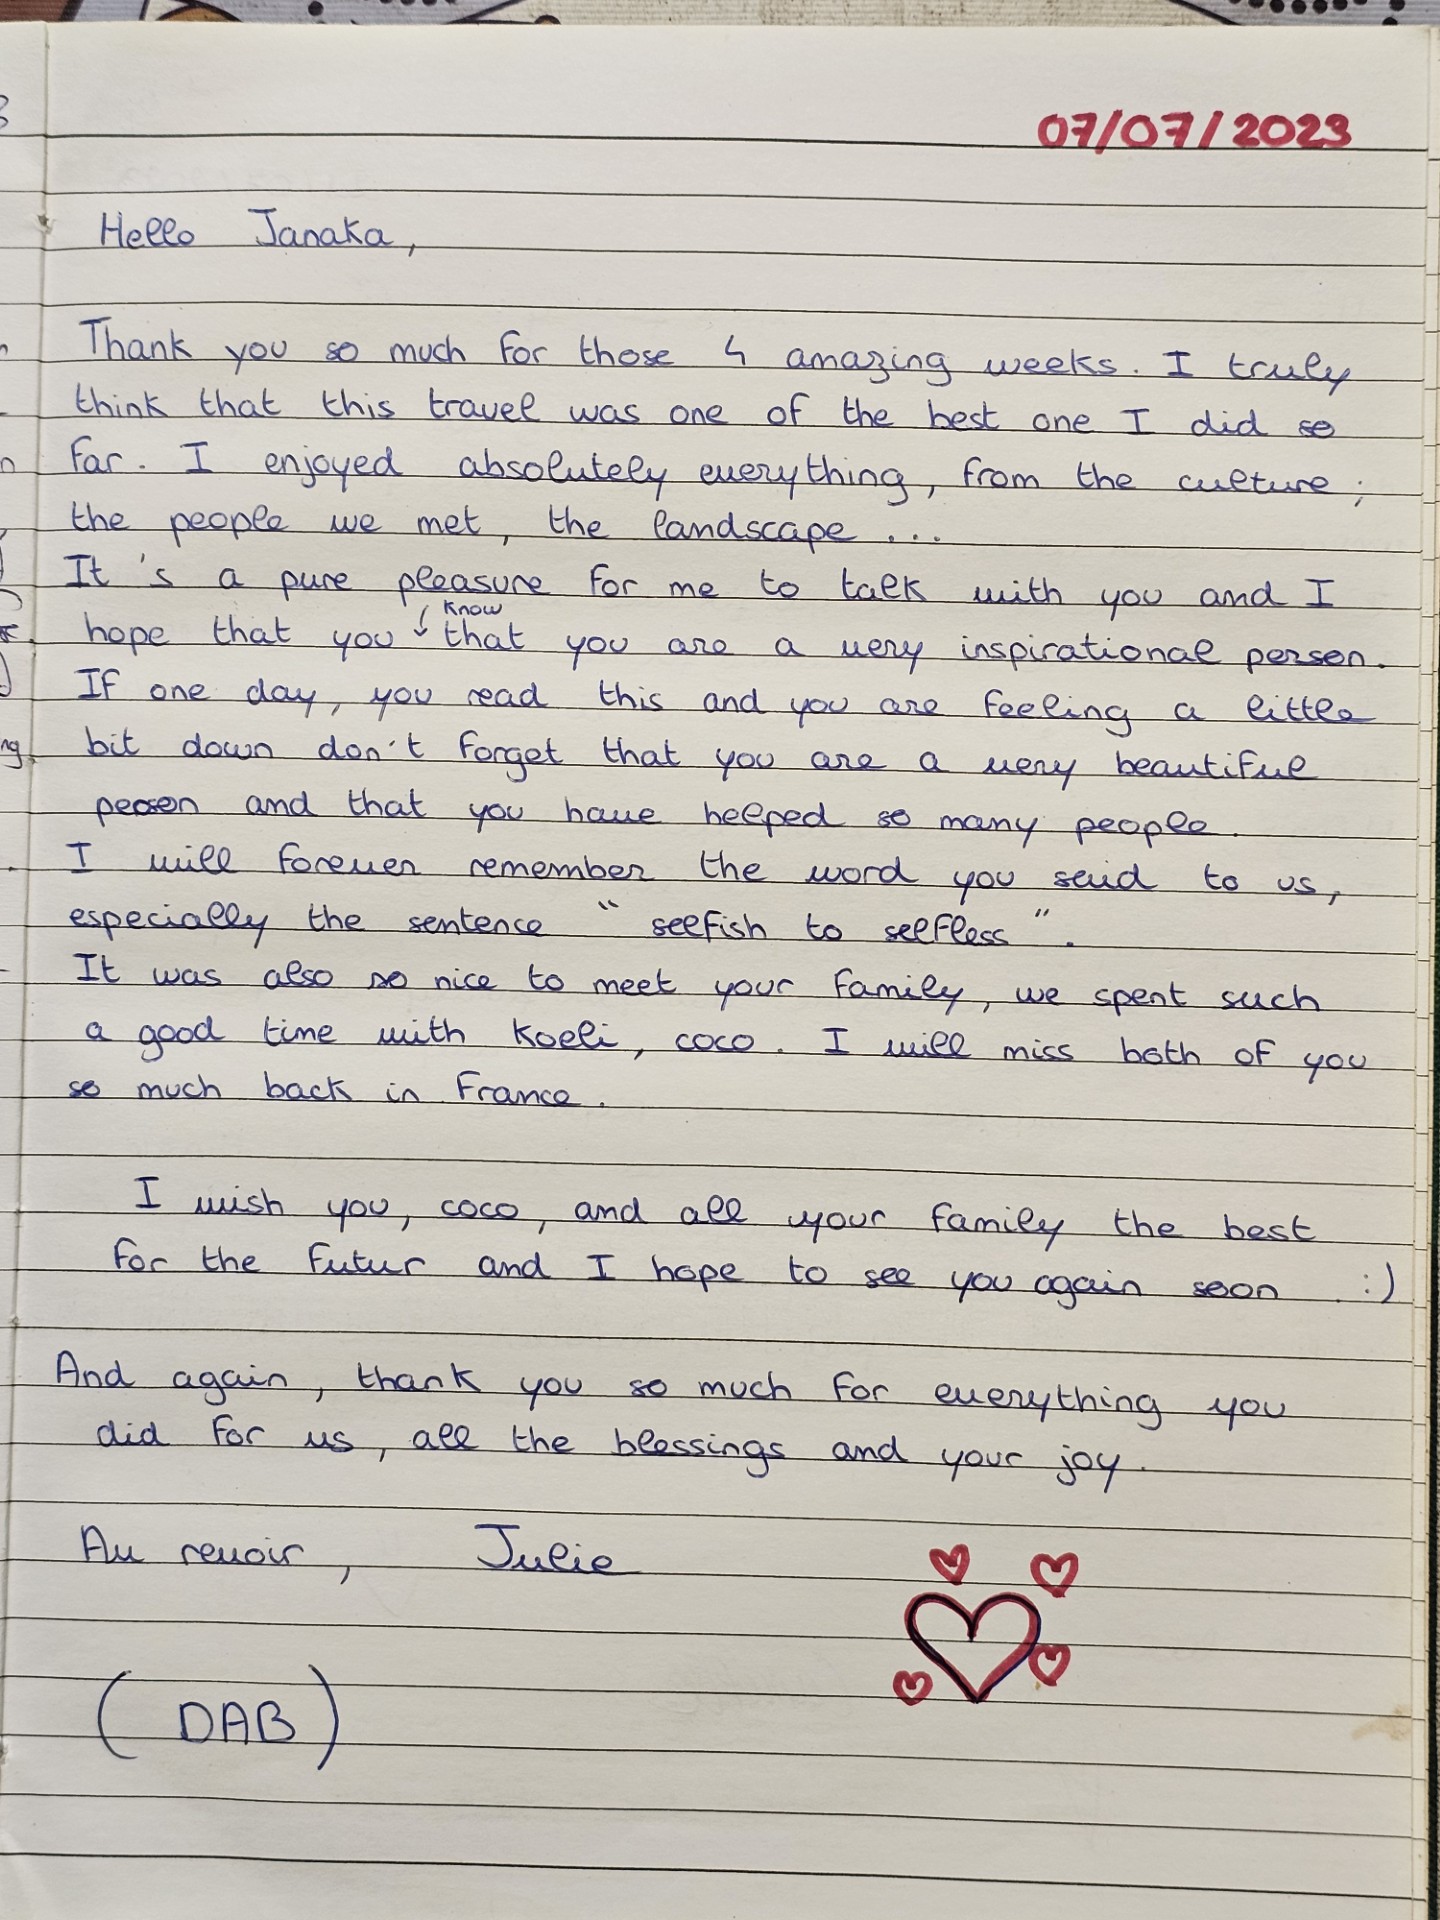 07/07/2023
Hello Janaka,
Thank you so much for those 4 amazing weeks. I truly
think that this travel was one of the best one I did so
far. I enjoyed absolutely everything, from the culture,
the people we met, the landscape ...
It 's a pure pleasure for me to talk with you and I
know
hope that you that you are a very inspirational person.
If one day, you read this and you are feeling a little
bit down don't forget that you are a very beautiful
person and that you have helped so many people.
I will forever remember the word you said to us,
especially the sentence " selfish to selfless ".
It was also so nice to meet your family, we spent such
a good time with Koeli, coco. I will miss both of you
so much back in France.
I wish you, coco, and all your family the best
for the futur and I hope to see you again soon :)
And again, thank you so much for everything you
did for us, all the blessings and your joy.
Au revoir, Julie
(DAB)